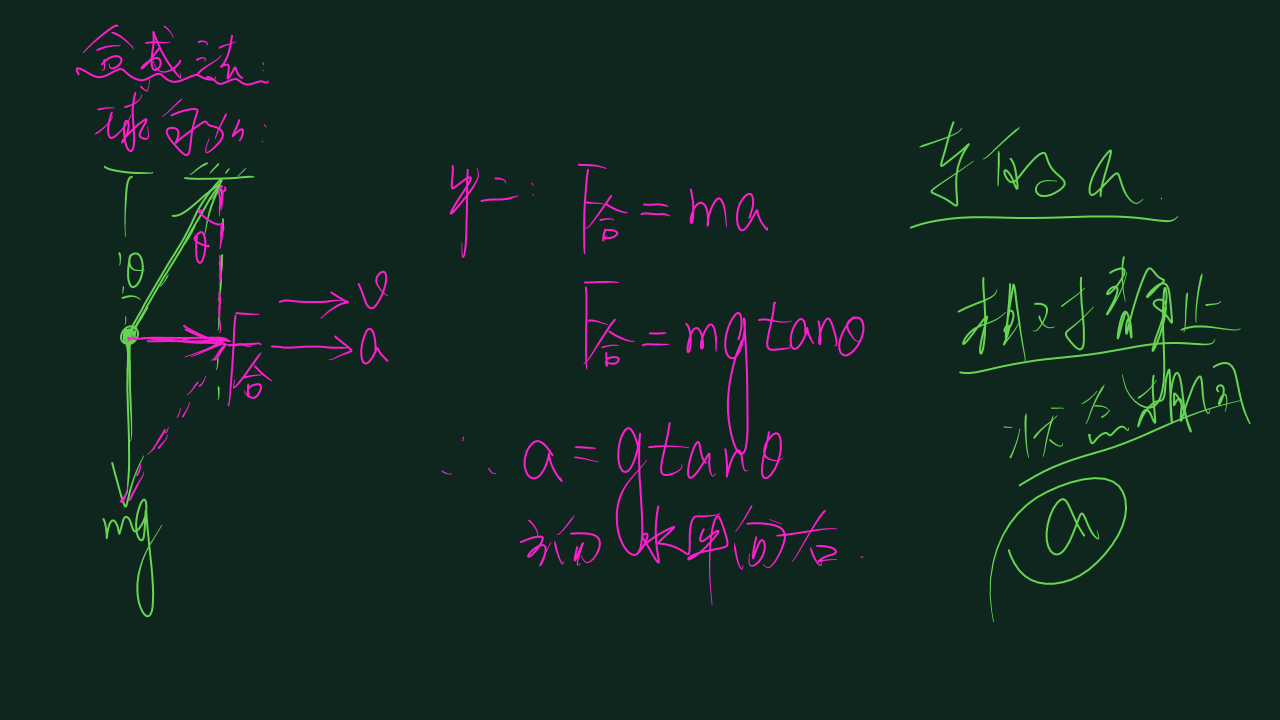 合成法:
球和外:
T
θ
θ
F合
v
a
mg
牛二:
F合=ma
F合=mgtanθ
∴ a=gtanθ
方向水平向右.
车的a.
相对静止
状态相同
a